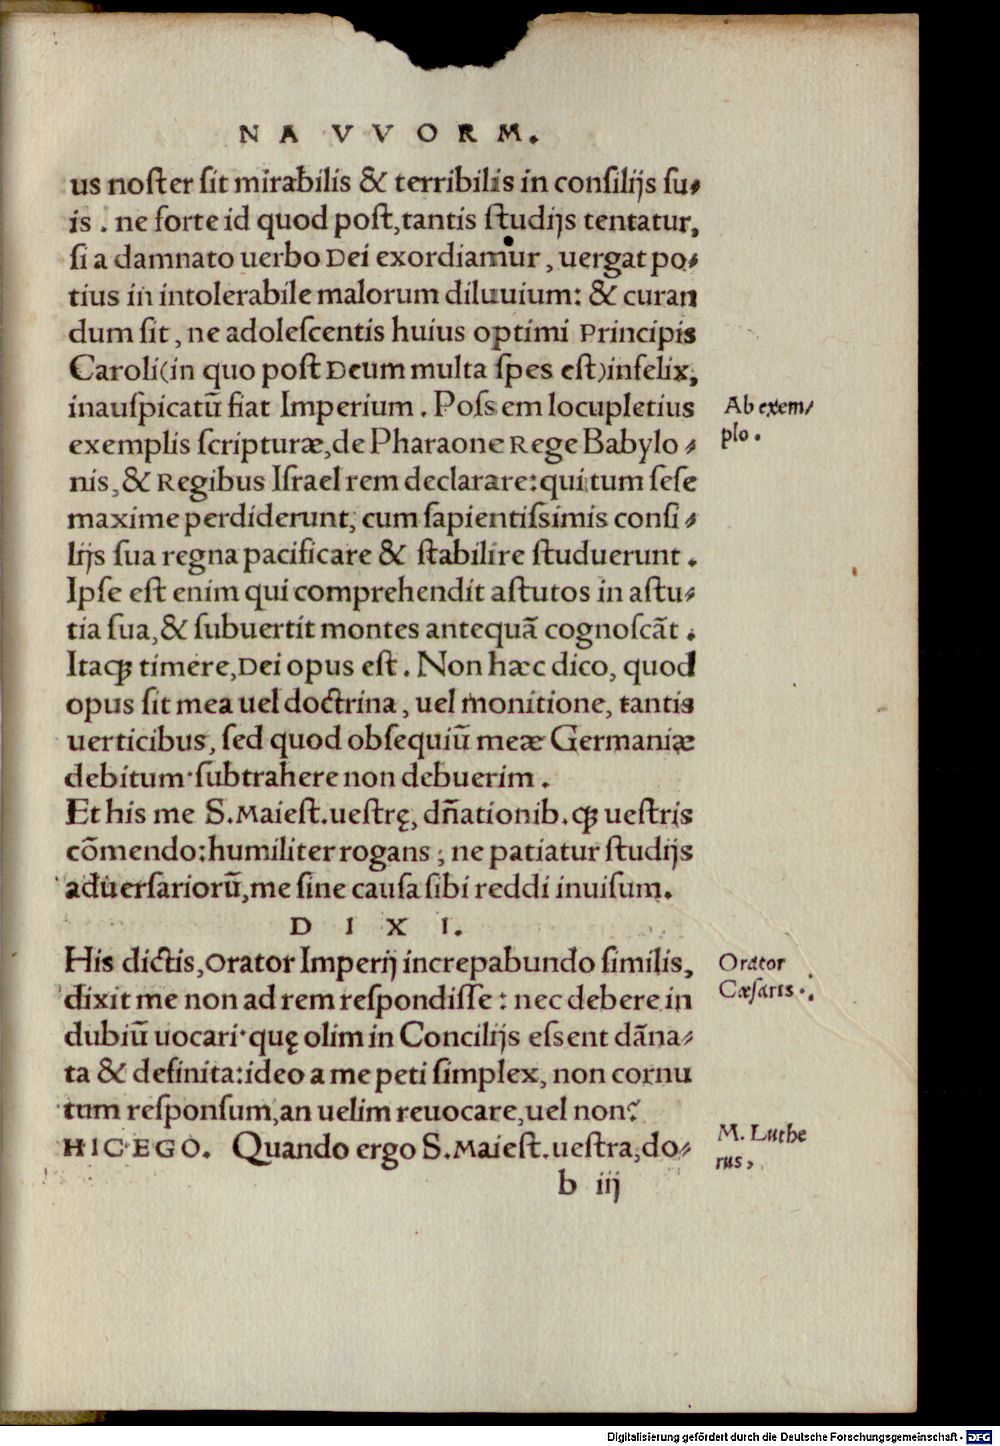 NA VVORM.
us noster sit mirabilis & terribilis in consilijs su⸗
is . ne forte id quod post, tantis studijs tentatur,
si a damnato uerbo Dei exordiamur, uergat po⸗
tius in intolerabile malorum diluuium: & curan
dum sit, ne adolescentis huius optimi Principis
Caroli (in quo post Deum multa spes est) infelix,
inauspicatũ fiat Imperium. Possem locupletius
Ab exem/
plo.
exemplis scripturæ, de Pharaone Rege Babylo⸗
nis, & Regibus Israel rem declarare: qui tum sese
maxime perdiderunt, cum sapientissimis consi⸗
lijs sua regna pacificare & stabilire studuerunt.
Ipse est enim qui comprehendit astutos in astu⸗
tia sua, & subuertit montes antequã cognoscãt.
Itaqꝫ timere, Dei opus est. Non hæc dico, quod
opus sit mea uel doctrina, uel monitione, tantis
uerticibus, sed quod obsequiũ meæ Germaniæ
debitum subtrahere non debuerim.
Et his me S. Maiest. uestrę, dñationib. qꝫ uestris
cõmendo: humiliter rogans, ne patiatur studijs
aduersariorũ, me sine causa sibi reddi inuisum.
DIXI.
His dictis, Orator Imperij increpabundo similis,
Orator
Cæsaris.
dixit me non ad rem respondisse: nec debere in
dubiũ uocari quę olim in Concilijs essent dãna⸗
ta & definita: ideo a me peti simplex, non cornu
tum responsum, an uelim reuocare, uel non?
HIC EGO. Quando ergo S. Maiest. uestra, do⸗
M. Luthe
rus,
b iij
Digitalisierung gefördert durch die Deutsche Forschungsgemeinschaft - DFG